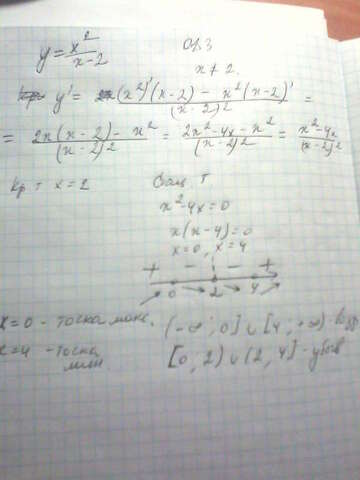 y = x²/(x-2)
x ≠ 2
y' = ((x²)'(x-2) - x²(x-2)')/(x-2)² =
= (2x(x-2) - x²)/(x-2)² = (2x²-4x-x²)/(x-2)² = (x²-4x)/(x-2)²
кр т x=2
Стац. т
x²-4x=0
x(x-4)=0
x=0, x=4
+ - - +
0 2 4
x=0 - точка макс. (-∞; 0] ∪ [4; +∞)
x=4 - точка мин [0; 2) ∪ (2, 4] - убыв